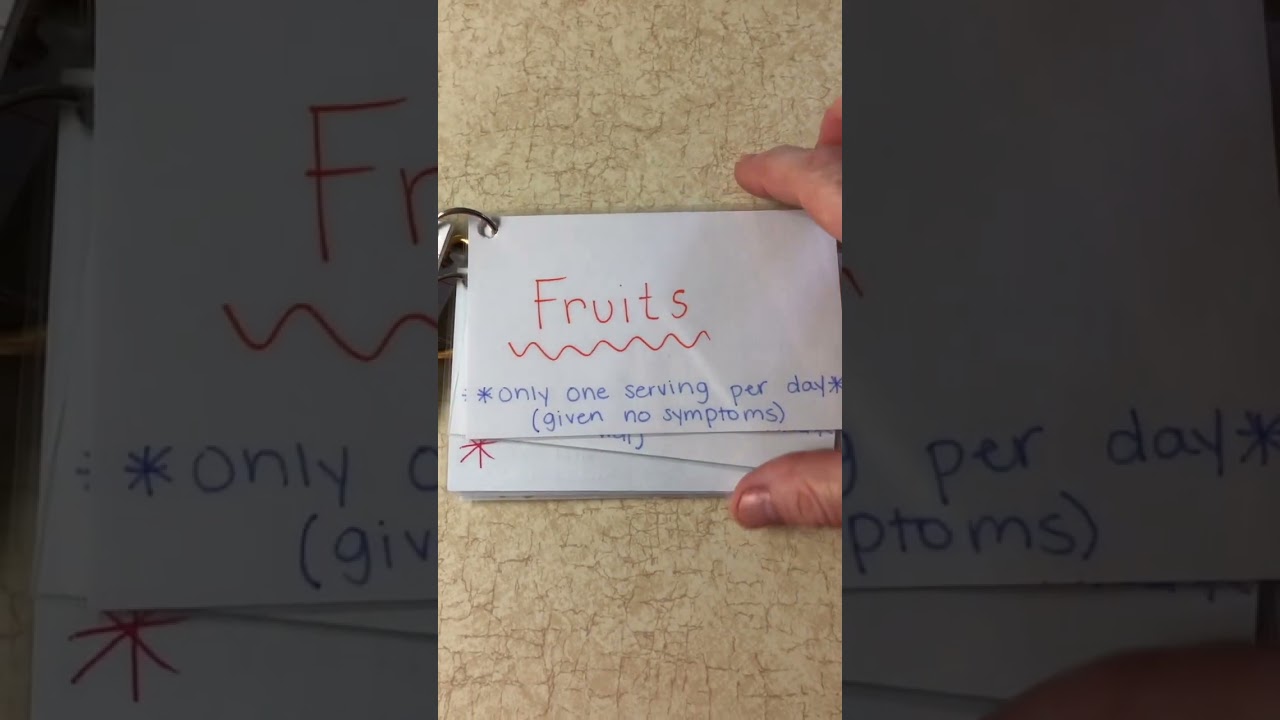 Fruits
*only one serving per day*
(given no symptoms)
*